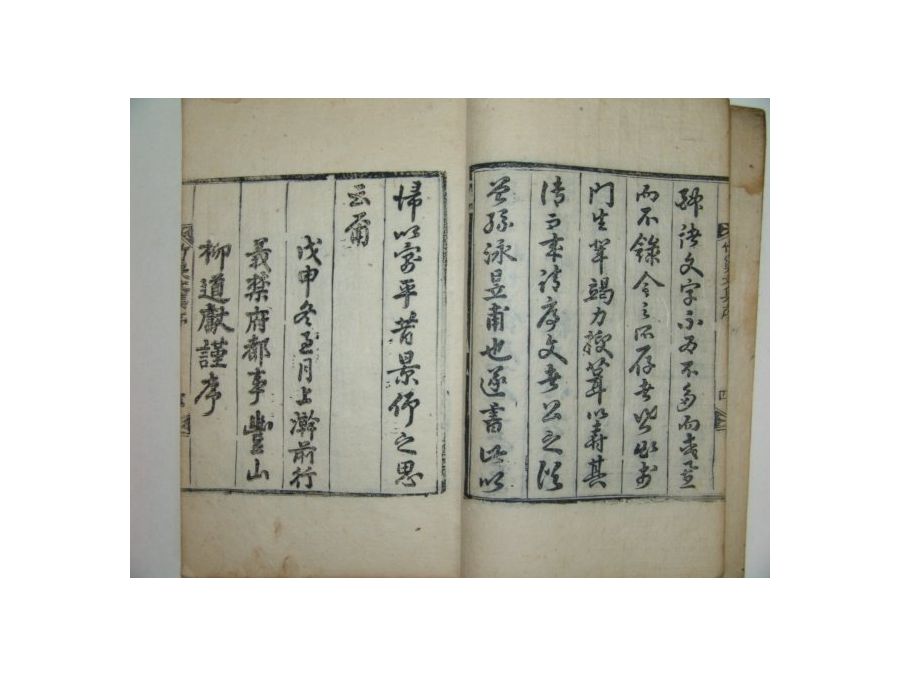 文字不為不多而
而不錄今之所存者
門生輩竭力搜葺以壽其
傳而來請序文者公之從
曾孫泳昱甫也遂書此以
四
歸以寓平昔景仰之思
云爾
戊申冬至月上澣前行
義禁府都事豊山
柳道獻謹序